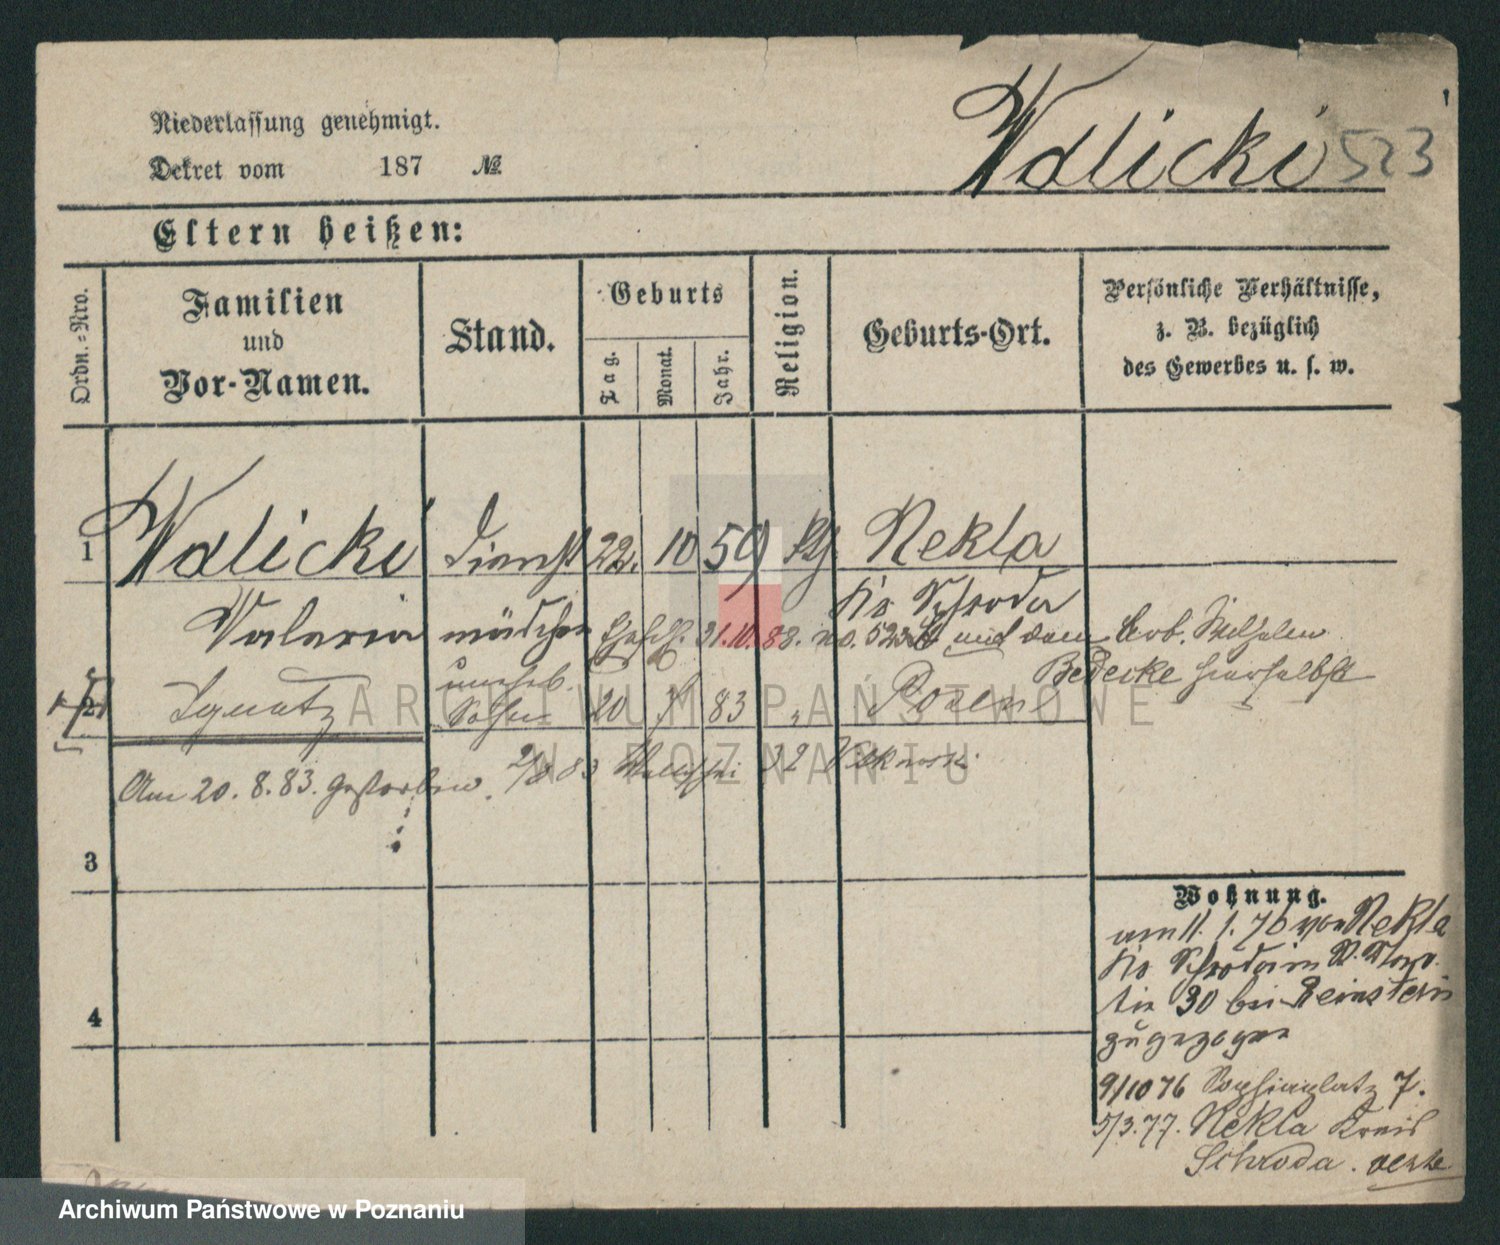 Niederlassung genehmigt.
Dekret vom 187 №
Walicki 523
Eltern heißen:
Ordn.-Nro.
Familien
und
Vor-Namen.
Stand.
Geburts
Tag.
Monat.
Jahr.
Religion.
Geburts-Ort.
Persönliche Verhältnisse,
z. B. bezüglich
des Gewerbes u. s. w.
1 Walicki Dienst 22. 10 59 Nekla
Valeria mädchen Kr. Schroda
Ehesch. 31.10.88. no. 523 und dem Arb. Wilhelm
Bedecke hierselbst
2 Ignatz uneheb. Sohn 20 7 83 " Posen
Am 20. 8. 83. gestorben. 2/8 83 Wallischei 32
3
4
Wohnung.
am 11. 1. 76 von Nekla
Kr. Schroda in
30 bei
zugezogen
9/10 76 Sapiehaplatz 7.
5/3.77. Nekla Kreis
Schroda.
ARCHIWUM PAŃSTWOWE
W POZNANIU
Archiwum Państwowe w Poznaniu